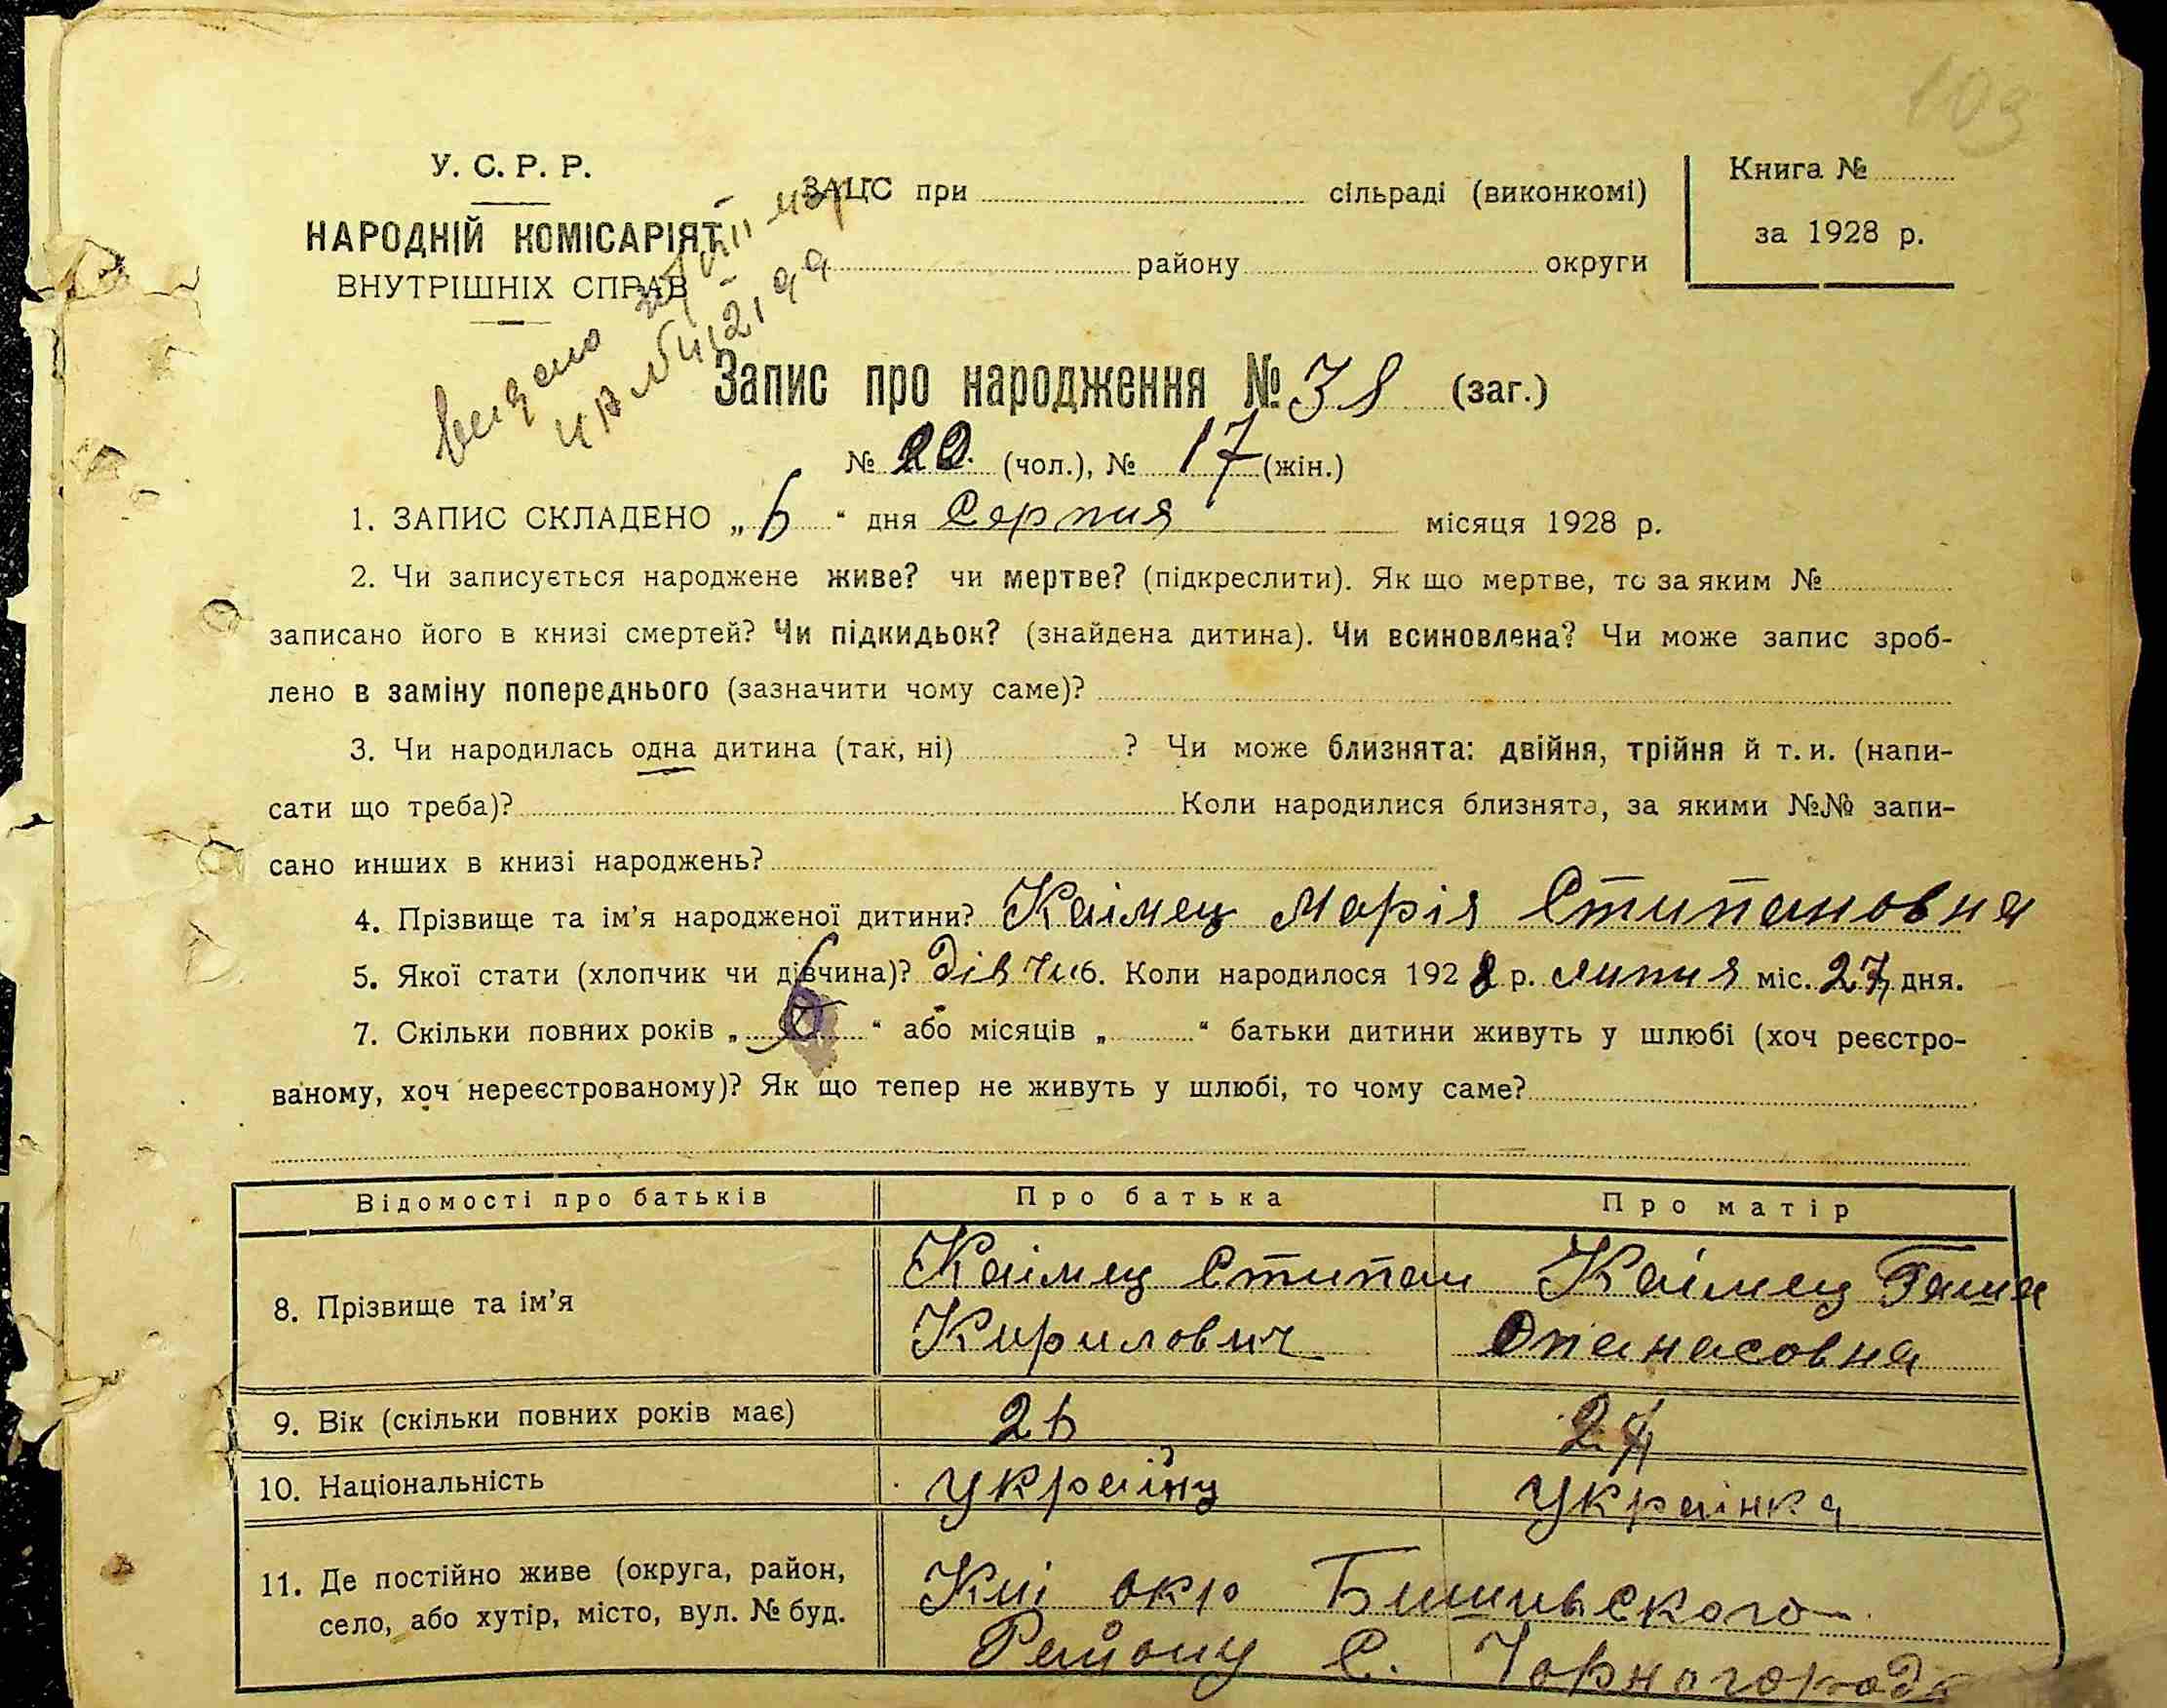 109
У. С. Р. Р.
НАРОДНІЙ КОМІСАРІЯТ
ВНУТРІШНІХ СПРАВ
ЗАЦС при сільраді (виконкомі)
району округи
Книга №
за 1928 р.
Запис про народження № 38 (заг.)
№ 20. (чол.), № 17 (жін.)
1. ЗАПИС СКЛАДЕНО „ 6 “ дня Серпня місяця 1928 р.
2. Чи записується народжене живе? чи мертве? (підкреслити). Як що мертве, то за яким №
записано його в книзі смертей? Чи підкидьок? (знайдена дитина). Чи всиновлена? Чи може запис зроб-
лено в заміну попереднього (зазначити чому саме)?
3. Чи народилась одна дитина (так, ні) ? Чи може близнята: двійня, трійня й т. и. (напи-
сати що треба)? Коли народилися близнята, за якими №№ запи-
сано инших в книзі народжень?
4. Прізвище та ім’я народженої дитини? Каімец Марія Стипановна
5. Якої стати (хлопчик чи дівчина)? Дівчи 6. Коли народилося 1928 р. липня міс. 27 дня.
7. Скільки повних років „ 6 “ або місяців „ “ батьки дитини живуть у шлюбі (хоч реєстро-
ваному, хоч нереєстрованому)? Як що тепер не живуть у шлюбі, то чому саме?
Відомості про батьків Про батька Про матір
8. Прізвище та ім’я
Каімец Стипан Каімец Гаша
Кирилович Опанасовна
9. Вік (скільки повних років має) 26 24
10. Національність україиц українка
11. Де постійно живе (округа, район,
село, або хутір, місто, вул. № буд.
Киі окр Бишивського
Району С. Чорногорода